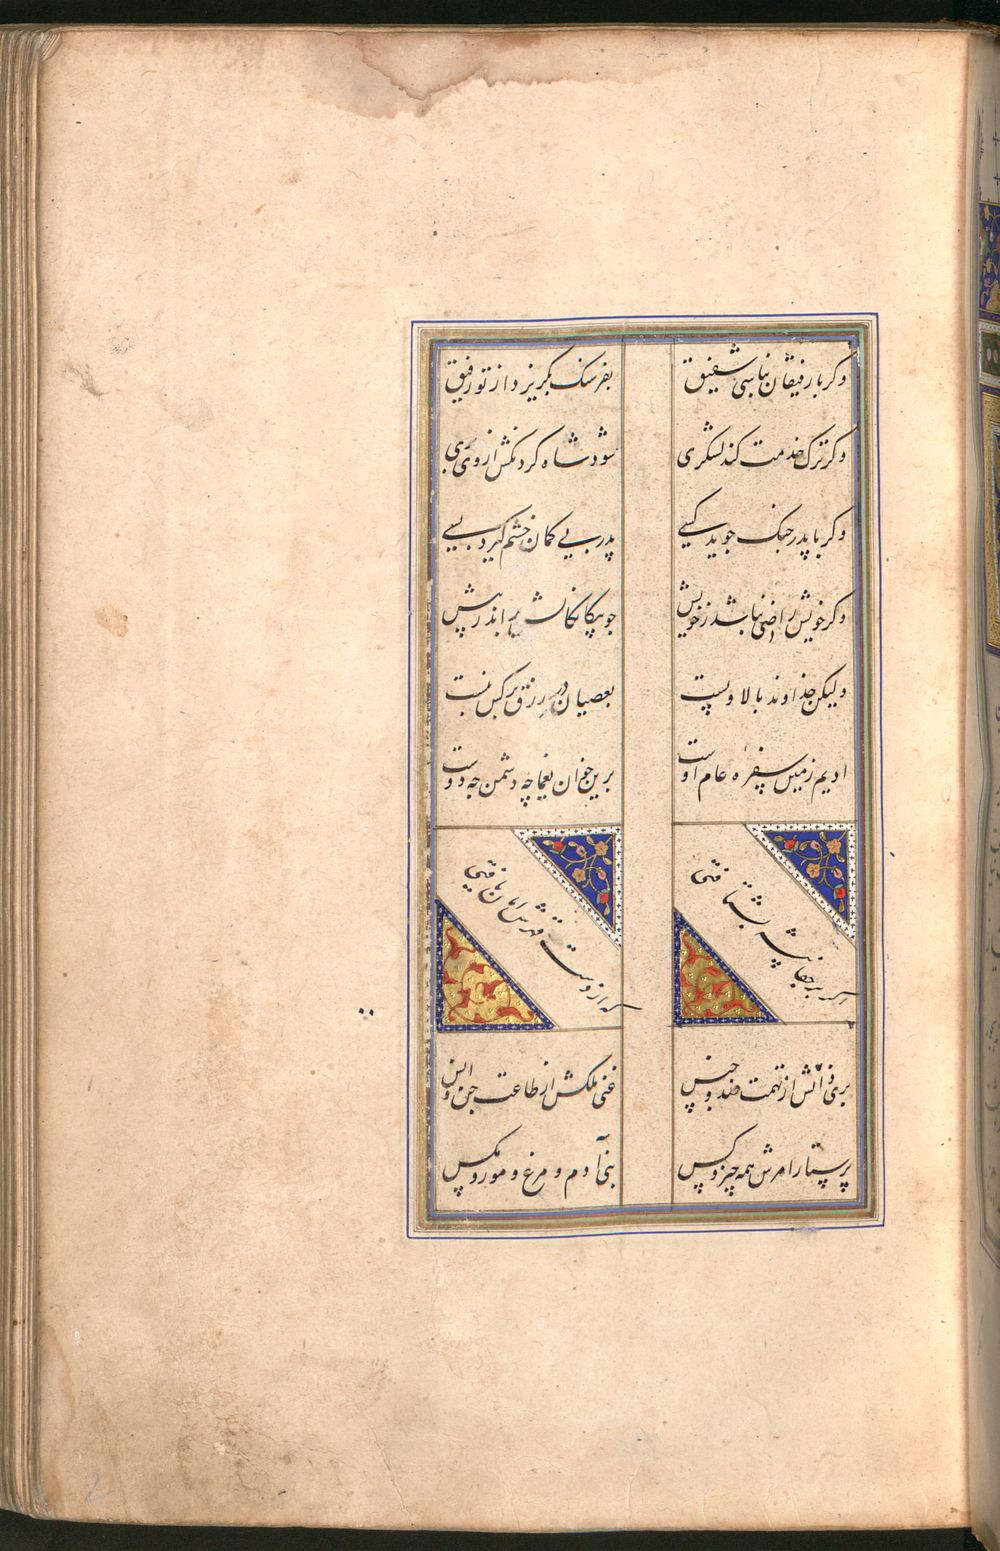 وکر با رفیقان نباشی شفیق بفرسنک بکریزد از تو رفیق
وکر ترک خدمت کند لشکری شود شاه کردنکش از وی بری
وکر با پدر جنک جوید کسی پدر بی کمان خشم کیرد بسی
وکر خویش راضی نباشد ز خویش جو بیکانکانش براند ز پیش
ولیکن خداوند بالا و پست بعصیان در رزق بر کس نبست
ادیم زمین سفره عام اوست برین خوان یغما چه دشمن جه دوست
اکر بر جفا پیشه بشتافتی که از دست قهرش امان یافتی
بری ذاتش از تهمت ضد و جنس غنی ملکش از طاعت جن و انس
پرستار امرش همه چیز و کس بنی آدم و مرغ و مور و مکس